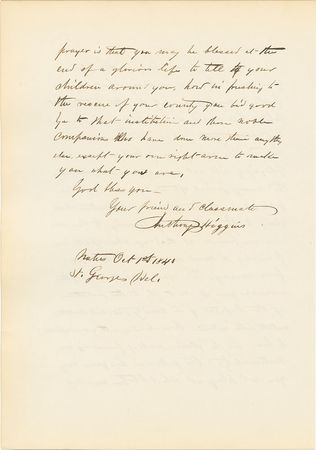 prayer is that you may be blessed at the
end of a glorious life to tell to your
children around you, how in rushing to
the rescue of your country you bid good
bye to that institution and those noble
companions who have done more than any thing
else except your own right arm to make
you what you are,
God bless you—
Your friend and Classmate
Anthony Higgins
Oct 1st
St. Georges Del.